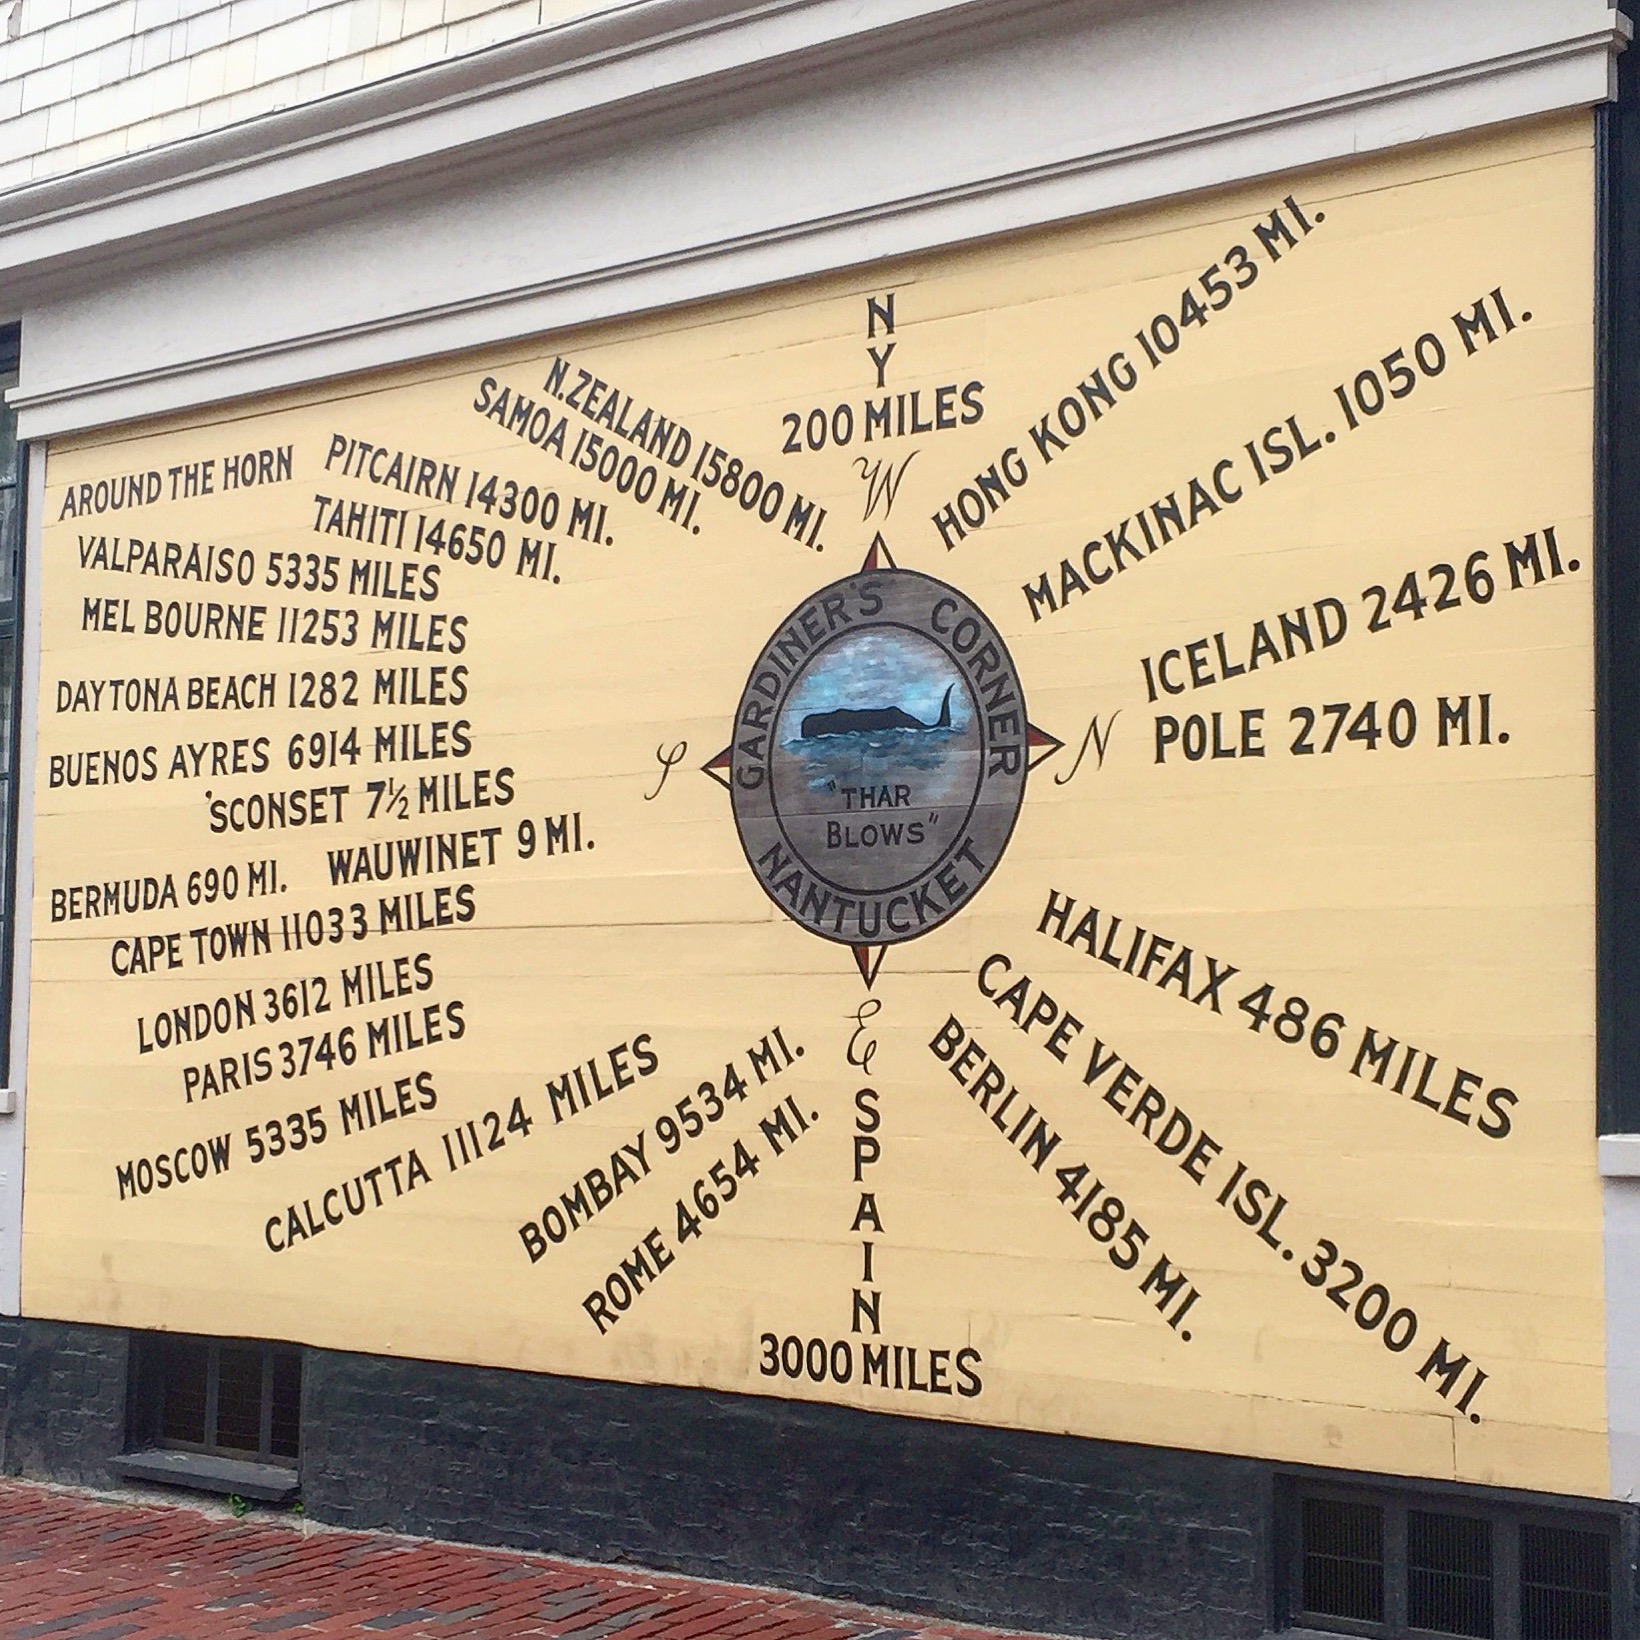 N
Y
200 MILES
W
N. ZEALAND 15800 MI.
SAMOA 15000 MI.
AROUND THE HORN
PITCAIRN 14300 MI.
TAHITI 14650 MI.
VALPARAISO 5335 MILES
MEL BOURNE 11253 MILES
DAYTONA BEACH 1282 MILES
BUENOS AYRES 6914 MILES
'SCONSET 7½ MILES
WAUWINET 9 MI.
BERMUDA 690 MI.
CAPE TOWN 11033 MILES
LONDON 3612 MILES
PARIS 3746 MILES
MOSCOW 5335 MILES
CALCUTTA 11124 MILES
BOMBAY 9534 MI.
ROME 4654 MI.
S
GARDINER'S CORNER
"THAR
BLOWS"
NANTUCKET
N
HONG KONG 10453 MI.
MACKINAC ISL. 1050 MI.
ICELAND 2426 MI.
POLE 2740 MI.
HALIFAX 486 MILES
CAPE VERDE ISL. 3200 MI.
BERLIN 4185 MI.
E
SPAIN
3000 MILES